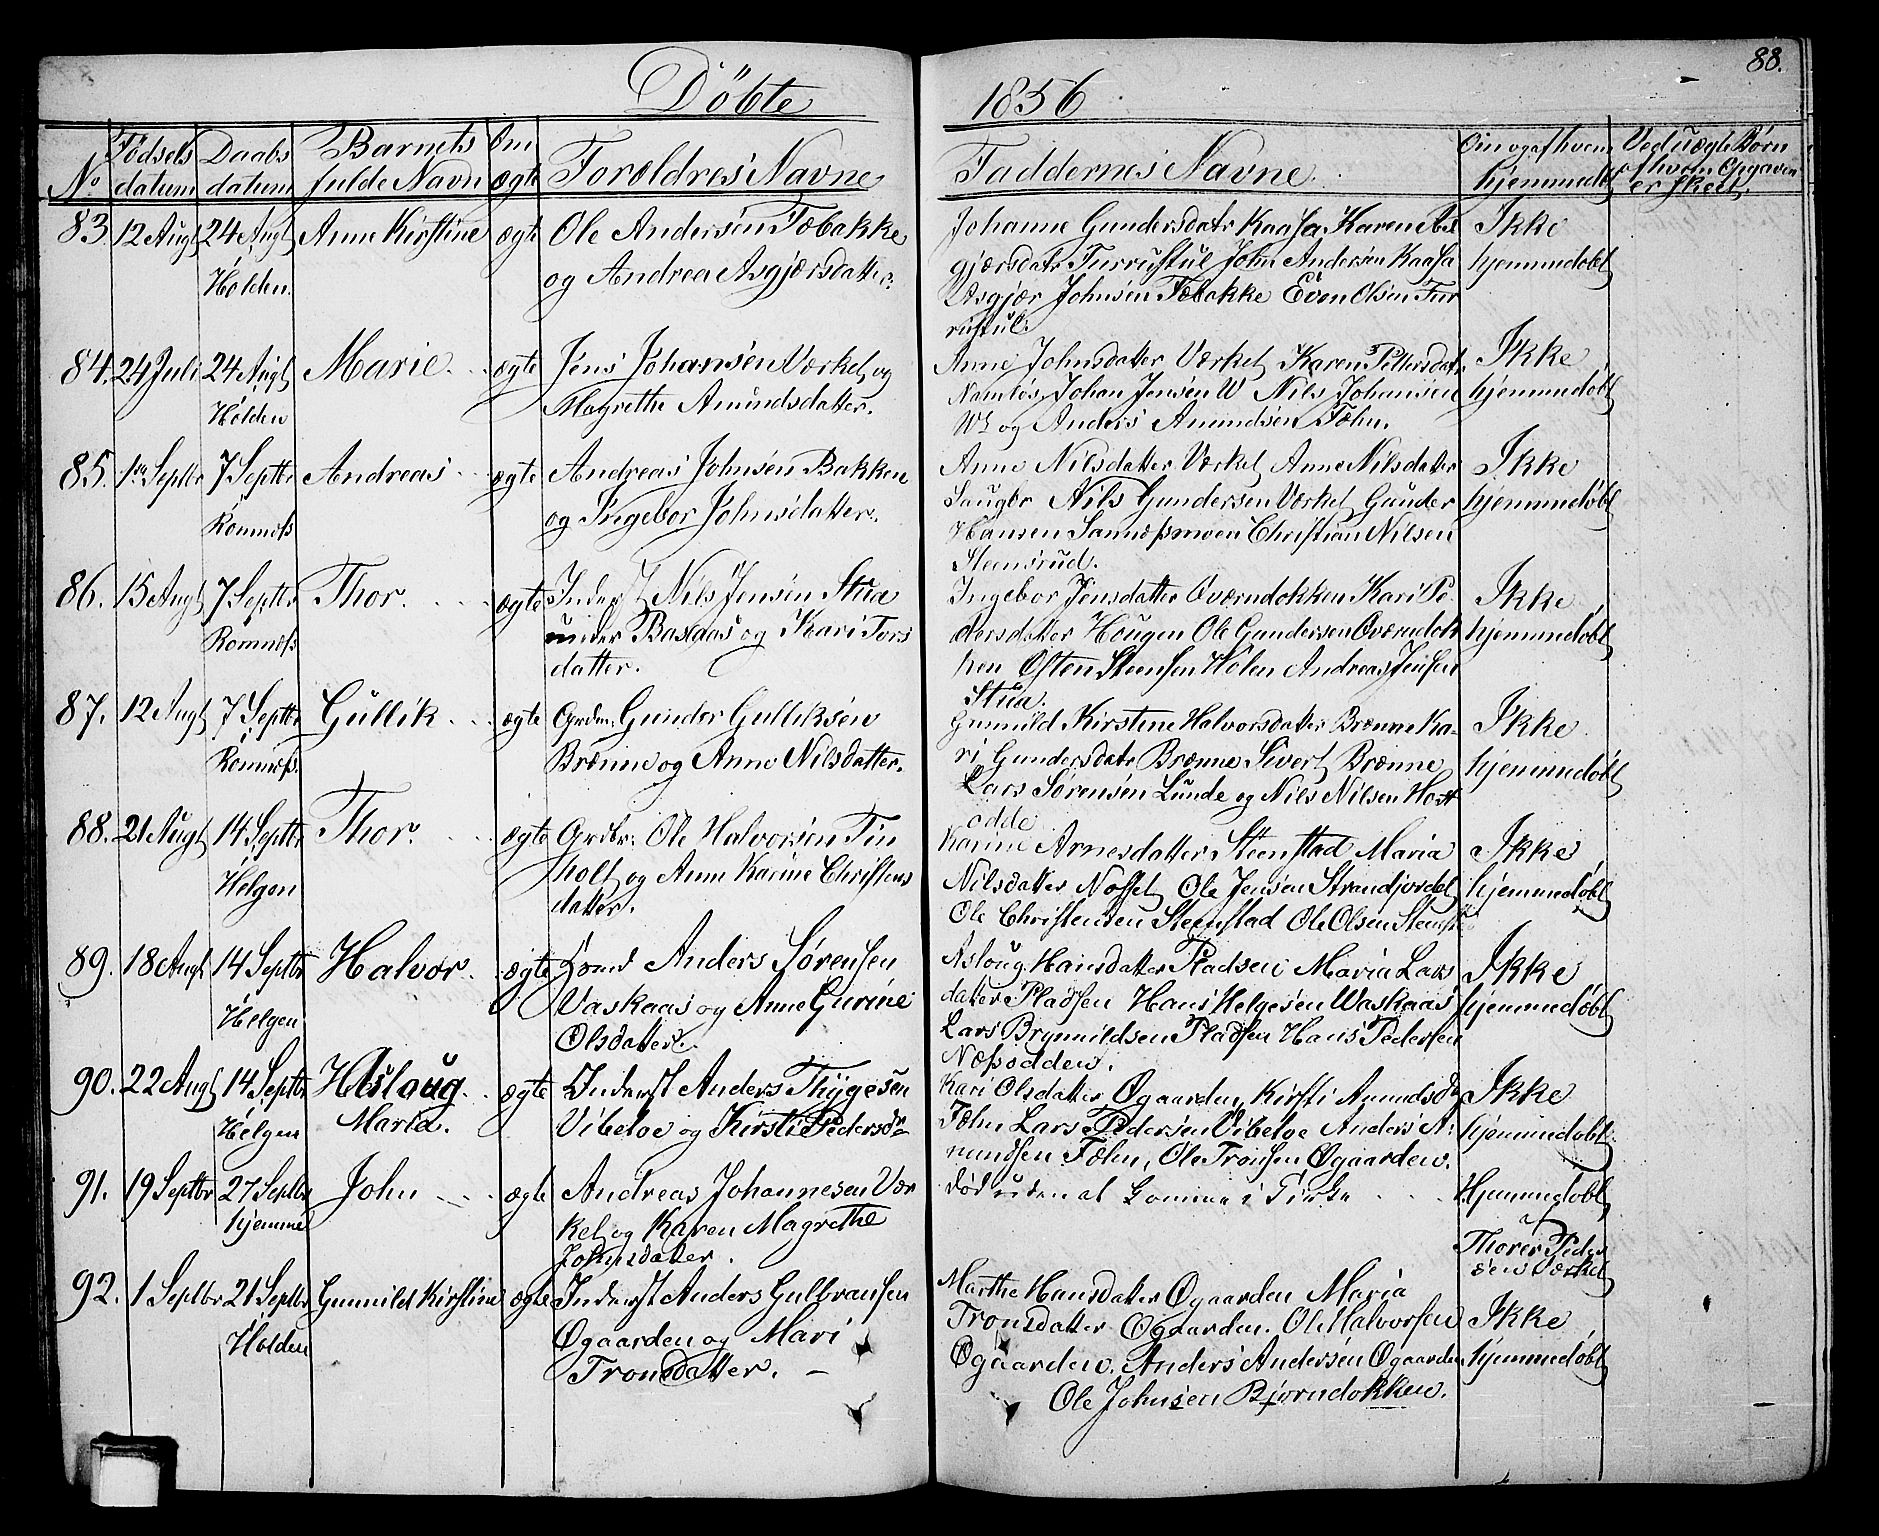 88.
Döbte
1856
No
Fødsels datum
Daabs datum
Barnets fulde Navn
Om ægte
Forældres Navne
Faddernes Navne
Om og af hvem hjemmedöbt
Ved uægte Børn af hvem Opgaven er skeet
83 12 Augt 24 Augt Anne Kirstine ægte Ole Andersen Tæbakke
Holden. og Andrea Asgjærsdatter.
Johanne Gundersdatr Kaasa Karen As
gjærsdatr Furrustul John Andersen Kaasa
Asgjær Johnsen Tæbakke Even Olsen Fur
rustul.
Ikke
hjemmedöbt
84. 24 Juli 24 Augt Marie ægte Jens Johansen Værket og
Holden Magrethe Amundsdatter.
Anne Johnsdatter Værket Karen Pettersdatr
Namløs Johan Jensen W Nils Johansen
Wt og Anders Amundsen Fæhn.
Ikke
hjemmedöbt
85. 1ste Septbr 7 Septbr Andreas ægte Andreas Johnsen Bakken
Romnæs og Ingebor Johnsdatter.
Anne Nilsdatter Værket Anne Nilsdatter
Saugbr Nils Gundersen Værket Gunder
Hansen Sannæsmoen Christian Nilsen
Steensrud.
Ikke
hjemmedöbt
86. 15 Augt 7 Septbr Thor. ægte Inders Nils Jensen Stua
Romnæs under Basaas og Kari Tors
datter.
Ingebor Jensdatter Qværndokken Kari Pe-
dersdatter Hougen Ole Gundersen Qværndok
ken Østen Steensen Holen Andreas Jensen
Stua.
Ikke
hjemmedöbt
87. 12 Augt 7 Septbr Gullik ægte Grdm: Gunder Gulliksen
Romnæs. Brænne og Anne Nilsdatter.
Gunnild Kirstine Halvorsdatter Brænne Ka-
ri Gundersdatr Brænne Sivert Brænne
Lars Sørensen Lunde og Nils Nilsen Host
odde
Ikke
hjemmedöbt
88. 21 Augt 14 Septbr Thor. ægte Grdbr: Ole Halvorsen Tin
Helgen holt og Anne Karine Christens
datter.
Karine Arnesdatter Steenstad Maria
Nilsdatter Nosset Ole Jensen Strandjordet
Ole Christensen Steenstad Ole Olsen Steenst
Ikke
hjemmedöbt
89. 18 Augt 14 Septbr Halvor. ægte Anders Sørensen
Helgen Vaskaas og Anne Gurine
Olsdatter.
Asloug Hansdatter Pladsen Maria Lars
datter Pladsen Hans Helgesen Waskaas
Lars Brynnildsen Pladsen Hans Pedersen
Næsodden.
Ikke
hjemmedöbt
90. 22 Augt 14 Septbr Aslaug ægte Inderst Anders Thygesen
Helgen Maria. Vibetoe og Kirsti Pedersdr
Kari Olsdatter Øgaarden Kirsti Amundsdr
Fæhn Lars Pedersen Vibetoe Anders A-
mundsen Fæhn, Ole Tronsen Øgaarden.
Ikke
hjemmedöbt
91. 19 Septbr 27 Septbr John ægte Andreas Johannesen Vær
hjemme ket og Karen Magrethe
Johnsdatter.
död uden at komme i Kirke
Hjemmedöbt
af
Thorer Peder
sen Værket
92. 1 Septbr 21 Septbr Gunnild Kirstine ægte Inderst Anders Gulbransen
Holden Øgaarden og Mari
Tronsdatter. –
Marthe Hansdatter Øgaarden Maria
Tronsdatter Øgaarden. Ole Halvorsen
Øgaarden. Anders Andersen Øgaarden
Ole Johnsen Bjørndokken.
Ikke
hjemmedöbt